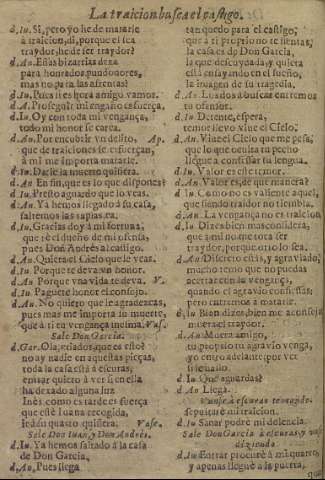 La traicion busca el castigo.
d. Iu. Si, pero yo he de matarle
à traicion, si, porque el sea
traydor, he de ser traydor?
d. An. Essas bizarrias dexa
para honrados pundonores,
mas no para las afrentas.
d. Iu. Pues si es hora amigo vamos.
d. A. Prosegir mi engaño es fuerça.
d. Iu. Oy con toda mi vengança,
todo mi honor se cerca.
d. An. Por encubrir vn delito, Ap.
que de traiciones se esfuerçan,
à mi me importa matarle.
d. Iu. Darle la muerte quisiera.
d. An. En fin, que es lo que dispones?
d. Iu. Presto aguardo que lo veas.
d. An. Ya hemos llegado à su casa,
saltemos las tapias, ea.
d. Iu. Gracias doy à mi fortuna,
que
pues Don Andres à castigo.
d. An. Quiera el Cielo que le veas.
d. Iu. Porque te deva vn honor.
d. An. Porque vna vida te deva. V.
d. Iu. Paguete honor el consejo.
d. An. No quiero que le agradezcas,
pues mas me importa su muerte,
que à ti tu vengança mesma. Vas.
Sale Don Garcia.
d. Gar. Ola, criados, que es esto?
no ay nadie en aquestas pieças,
toda la casa està à escuras;
entrar quiero à ver si en ella
ha dexado alguna luz
Inès; como es tarde es fuerça
que estè ya recogida,
iràse a quarto quisiera. Vase.
Sale Don Iuan, y Don Andrès.
d. Iu. Ya hemos saltado à la casa
de Don Garcia.
d. A. Pues llega
tan quedo para el castigo;
que à ti proprio no te sientas;
la casa es de Don Garcia,
la que descuydada, y quieta
està ensayando en el sueño,
la imagen de su tragedia.
d. An. Los dos à buscar entremos
tu ofensor.
d. Iu. Detente, espera,
temor llevo vive el Cielo;
d. An. Viue el Cielo que me pesa,
que lo que oculta tu pecho
llegue à confessar tu lengua.
d. Iu. Valor es este temor.
d. An. Valor es, de que manera?
d. Iu. Como no es valiente aquel,
que siendo traidor no tiembla.
d. An. La vengança no es traicion.
d. Iu. Dizes bien, mas considera,
que à mi no me toca ser
traydor, porque otro lo sea.
d. An. Discreto estàs, y agraviado;
mucho temo que no puedas
acertar con la vengança,
quando el agravio confiessas;
pero entremos à matarle.
d. Iu. Bien dizes, bien me aconseja
muera el traydor.
d. An. Muera amigo,
tu proprio tu agravio venga,
yo entro adelante por ver
si
d. Iu. Que aguardas?
d. An. Llega.
Vanse à escuras tentando.
sepultarè mi traicion.
d. Iu. Sanar podrè mi dolencia.
Sale Don Garcia à escuras, y
diziendo.
d. Iu. Entrar procurè à mi quarto,
y apenas lleguè à la puerta,